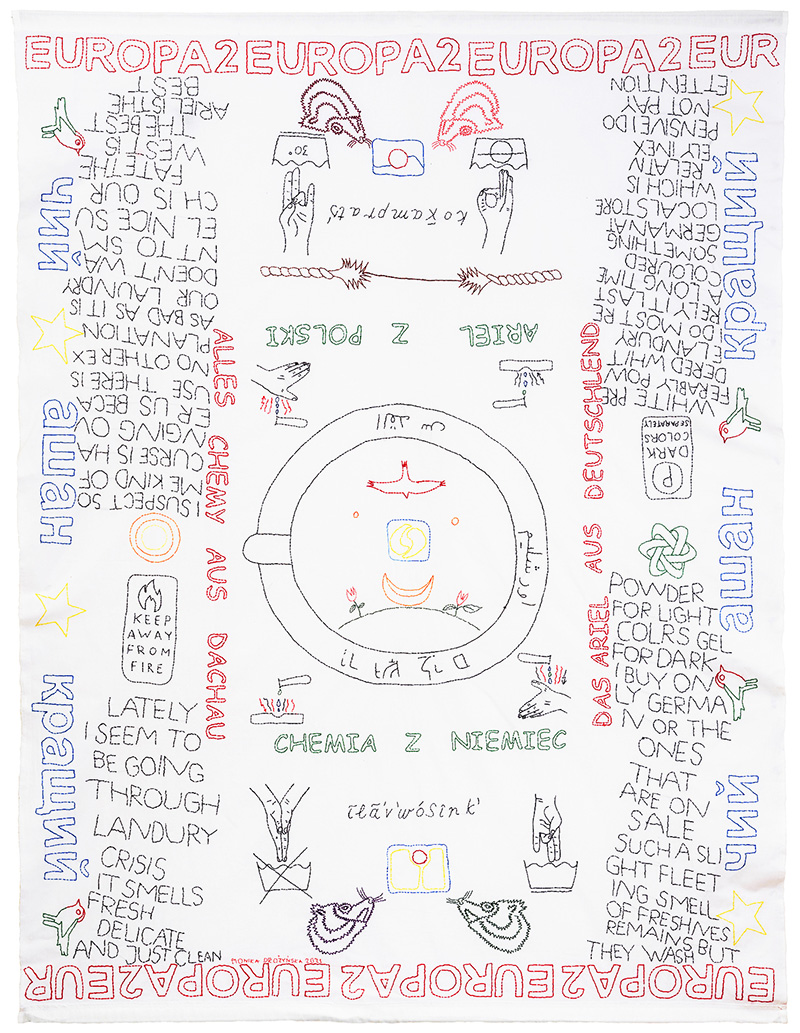 EUROPA2 EUROPA2 EUROPA2 EUR
I SUSPECT SO
ME KIND OF
CURSE IS HA
NGING OV
ER US BECA
USE THERE IS
NO OTHER EX
PLANATION
AS BAD AS IT IS
OUR LAUNDRY
DOENT WA
NT TO SM
EL NICE SU
CH IS OUR
FATE THE
WEST IS
THE BEST
ARIEL IS THE
BEST
WHITE PRE
FERABLY POW
DERED WHIT
E LANDURY
DO MOST RE
RELY IT LAST
A LONG TIME
COLOURED
SOMETHING
GERMANAT
LOCAL STORE
WHICH IS
RELATIV
ELY INEX
PENSIVE I DO
NOT PAY
ETTENTION
чий
ашан
кращий
кращий
наше
чий
30°
ARIEL Z POLSKI
ALLES CHEMY AUS DACHAU
DAS ARIEL AUS DEUTSCHLEND
P
DARK
COLORS
SEPARATELY
القدس
اورشليم
KEEP
AWAY
FROM
FIRE
CHEMIA Z NIEMIEC
LATELY
I SEEM TO
BE GOING
THROUGH
LANDURY
CRISIS
IT SMELLS
FRESH
DELICATE
AND JUST CLEAN
POWDER
FOR LIGHT
COLRS GEL
FOR DARK
I BUY ON
LY GERMA
N OR THE
ONES
THAT
ARE ON
SALE
SUCH A SLI
GHT FLEET
ING SMELL
OF FRESHNES
REMAINS BUT
THEY WASH BUT
MONIKA DROŻYŃSKA 2021
EUROPA2 EUROPA2 EUROPA2 EUR